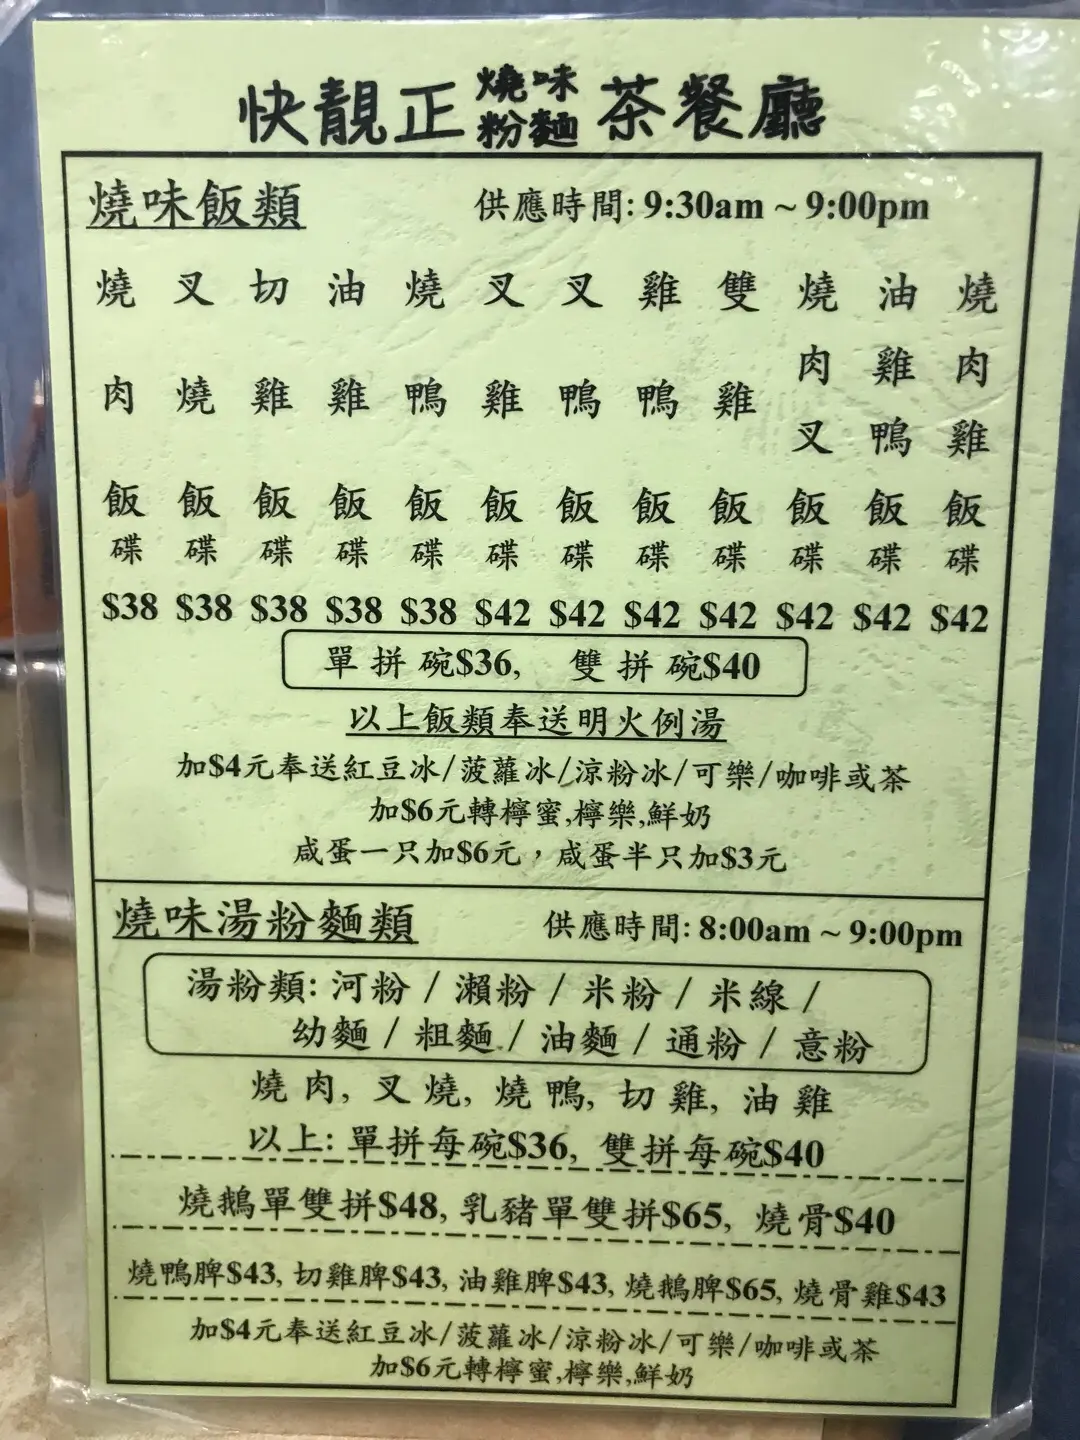 快靚正燒味粉麵茶餐廳
燒味飯類 供應時間: 9:30am ~ 9:00pm
燒 叉 切 油 燒 叉 叉 雞 雙 燒 油 燒
肉 雞 肉
肉 燒 雞 雞 鴨 雞 鴨 鴨 雞
叉 鴨 雞
飯 飯 飯 飯 飯 飯 飯 飯 飯 飯 飯 飯
碟 碟 碟 碟 碟 碟 碟 碟 碟 碟 碟 碟
$38 $38 $38 $38 $38 $42 $42 $42 $42 $42 $42 $42
單拼碗$36, 雙拼碗$40
以上飯類奉送明火例湯
加$4元奉送紅豆冰/菠蘿冰/涼粉冰/可樂/咖啡或茶
加$6元轉檸蜜,檸樂,鮮奶
咸蛋一只加$6元，咸蛋半只加$3元
燒味湯粉麵類 供應時間: 8:00am ~ 9:00pm
湯粉類: 河粉 / 瀨粉 / 米粉 / 米線 /
幼麵 / 粗麵 / 油麵 / 通粉 / 意粉
燒肉, 叉燒, 燒鴨, 切雞, 油雞
以上: 單拼每碗$36, 雙拼每碗$40
燒鵝單雙拼$48, 乳豬單雙拼$65, 燒骨$40
燒鴨脾$43, 切雞脾$43, 油雞脾$43, 燒鵝脾$65, 燒骨雞$43
加$4元奉送紅豆冰/菠蘿冰/涼粉冰/可樂/咖啡或茶
加$6元轉檸蜜,檸樂,鮮奶